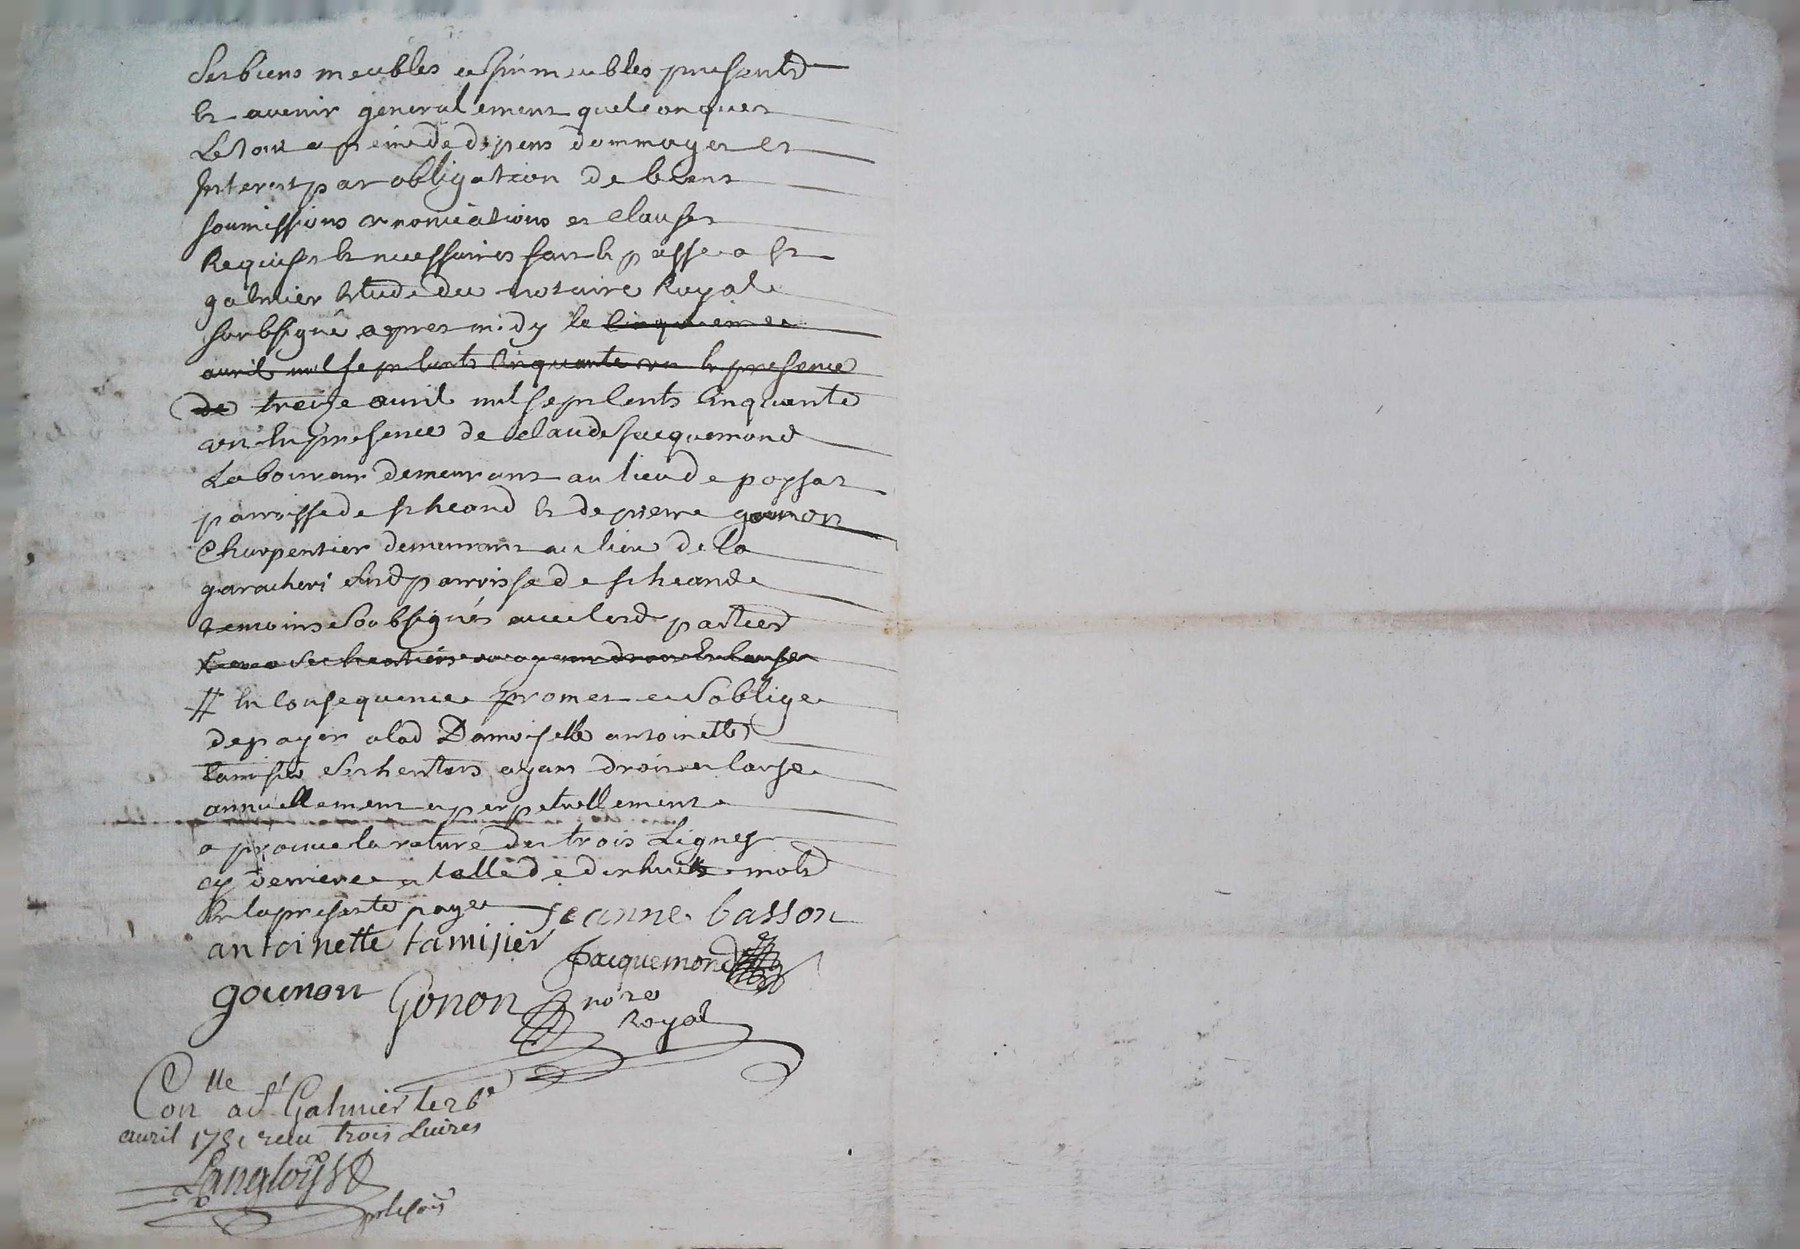 ses biens meubles et immeubles presents
et avenir generalement quelconques
Le tout a peine de depens dommages et
Interest par obligation de biens
soumissions renonciations et clauses
Requises et necessaires fait et passé a st
galmier Etude du notaire Royal
soubsigné apres midy le cinquieme
avril mil sept cents cinquante un en presence
de treize avril mil sept cents cinquante
un en presence de claude Jacquemond
Laboureur demeurant au lieu de poysat
parroisse de st heand et de pierre gounon
Charpentier demeurant au lieu de la
garacheri susd parroisse de st heand
temoins Soubsignés avec lesd parties
ses heritiers ou ayant droit En cause
// En consequence promet et s'oblige
de payer a lad Damoiselle antoinette
tamisier Ses heritiers ayant droit et cause
annuellement et perpetuellement
aprouve la rature des trois Lignes
cy derriere et celle de dix huit mots
En la presente page Jeanne basson
antoinette tamisier Jacquemond
gounon Gonon nore
Royal
Conlle a st Galmier le 26e
avril 1751 recu trois Livres
Langloys